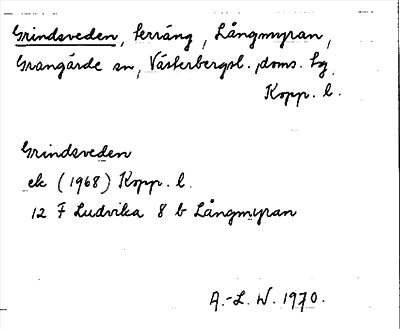 Grindsveden, terräng, Långmyran,
Grangärde sn, Västerbergsl. doms. tg
Kopp. l.
Grindsveden
ek (1968) Kopp. l.
12 F Ludvika 8 b Långmyran
A.-L. W. 1970.